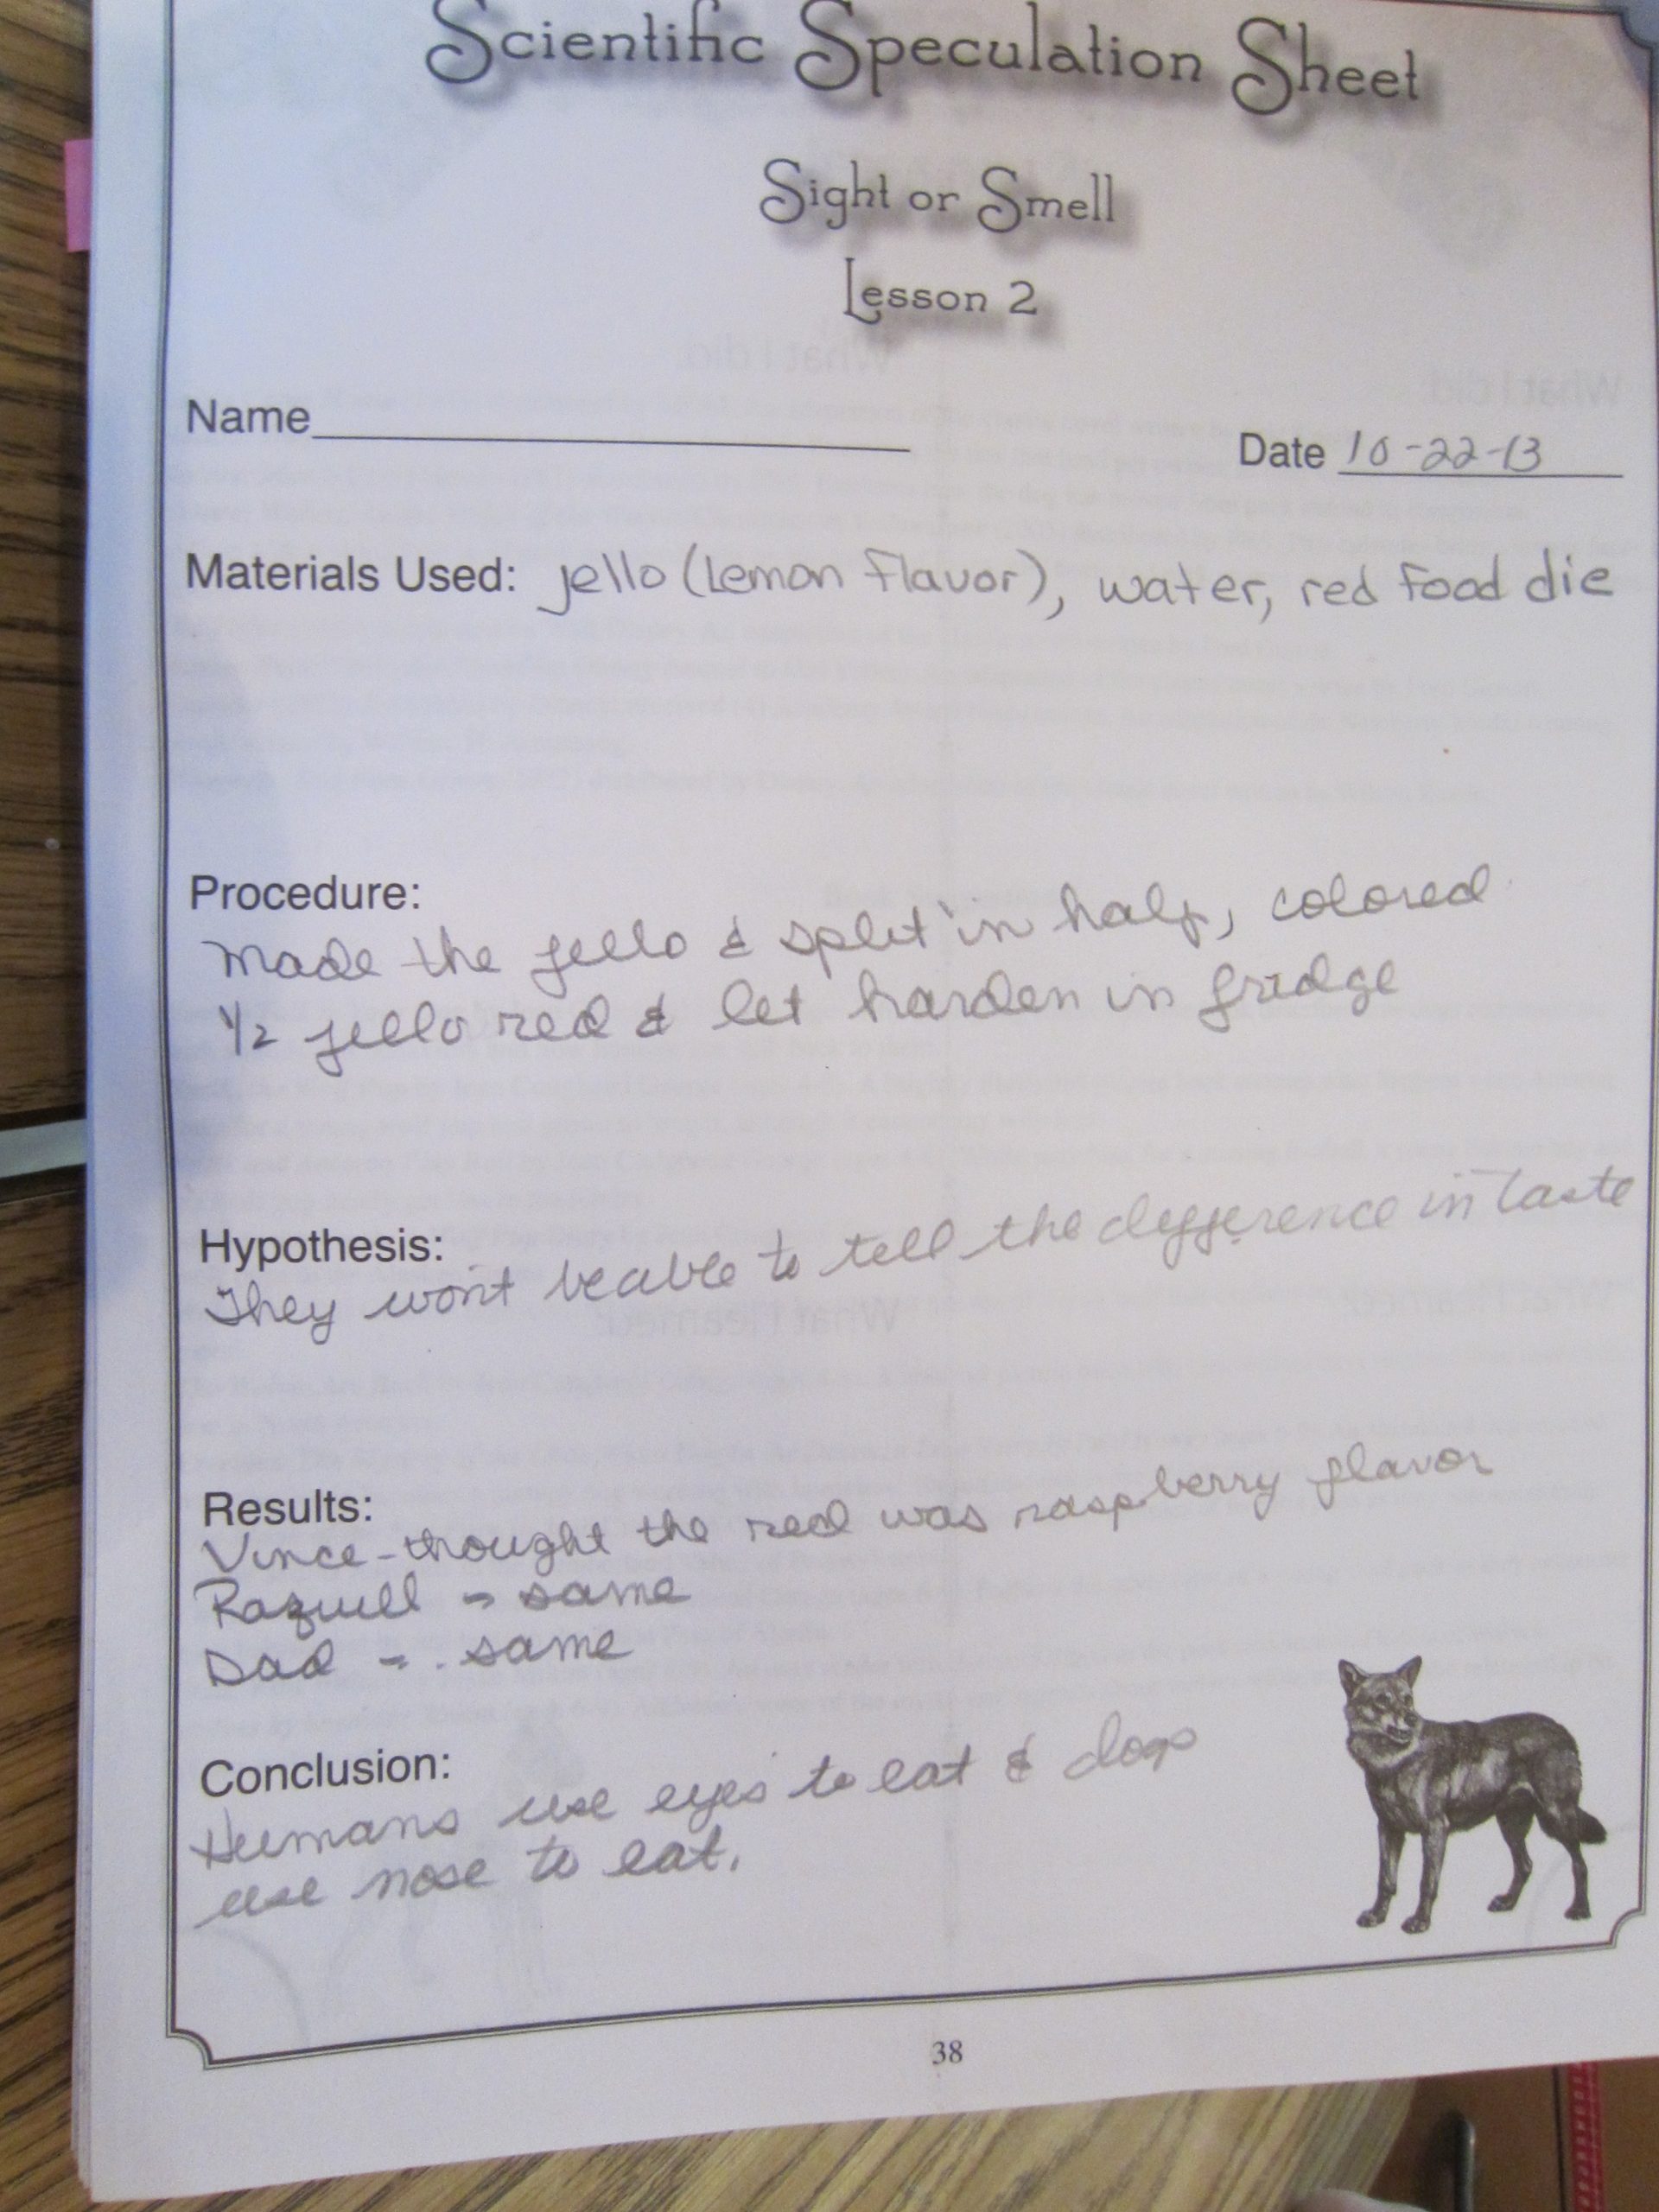 Scientific Speculation Sheet
Sight or Smell
Lesson 2
Name
Date 10-22-13
Materials Used: jello (Lemon Flavor), water, red food die
Procedure:
Made the jello & split in half, colored
1/2 jello red & let harden in fridge
Hypothesis:
They won't be able to tell the difference in taste
Results:
Vince - thought the red was raspberry flavor
Razuell - same
Dad - same
Conclusion:
Humans use eyes to eat & dogs
use nose to eat.
38